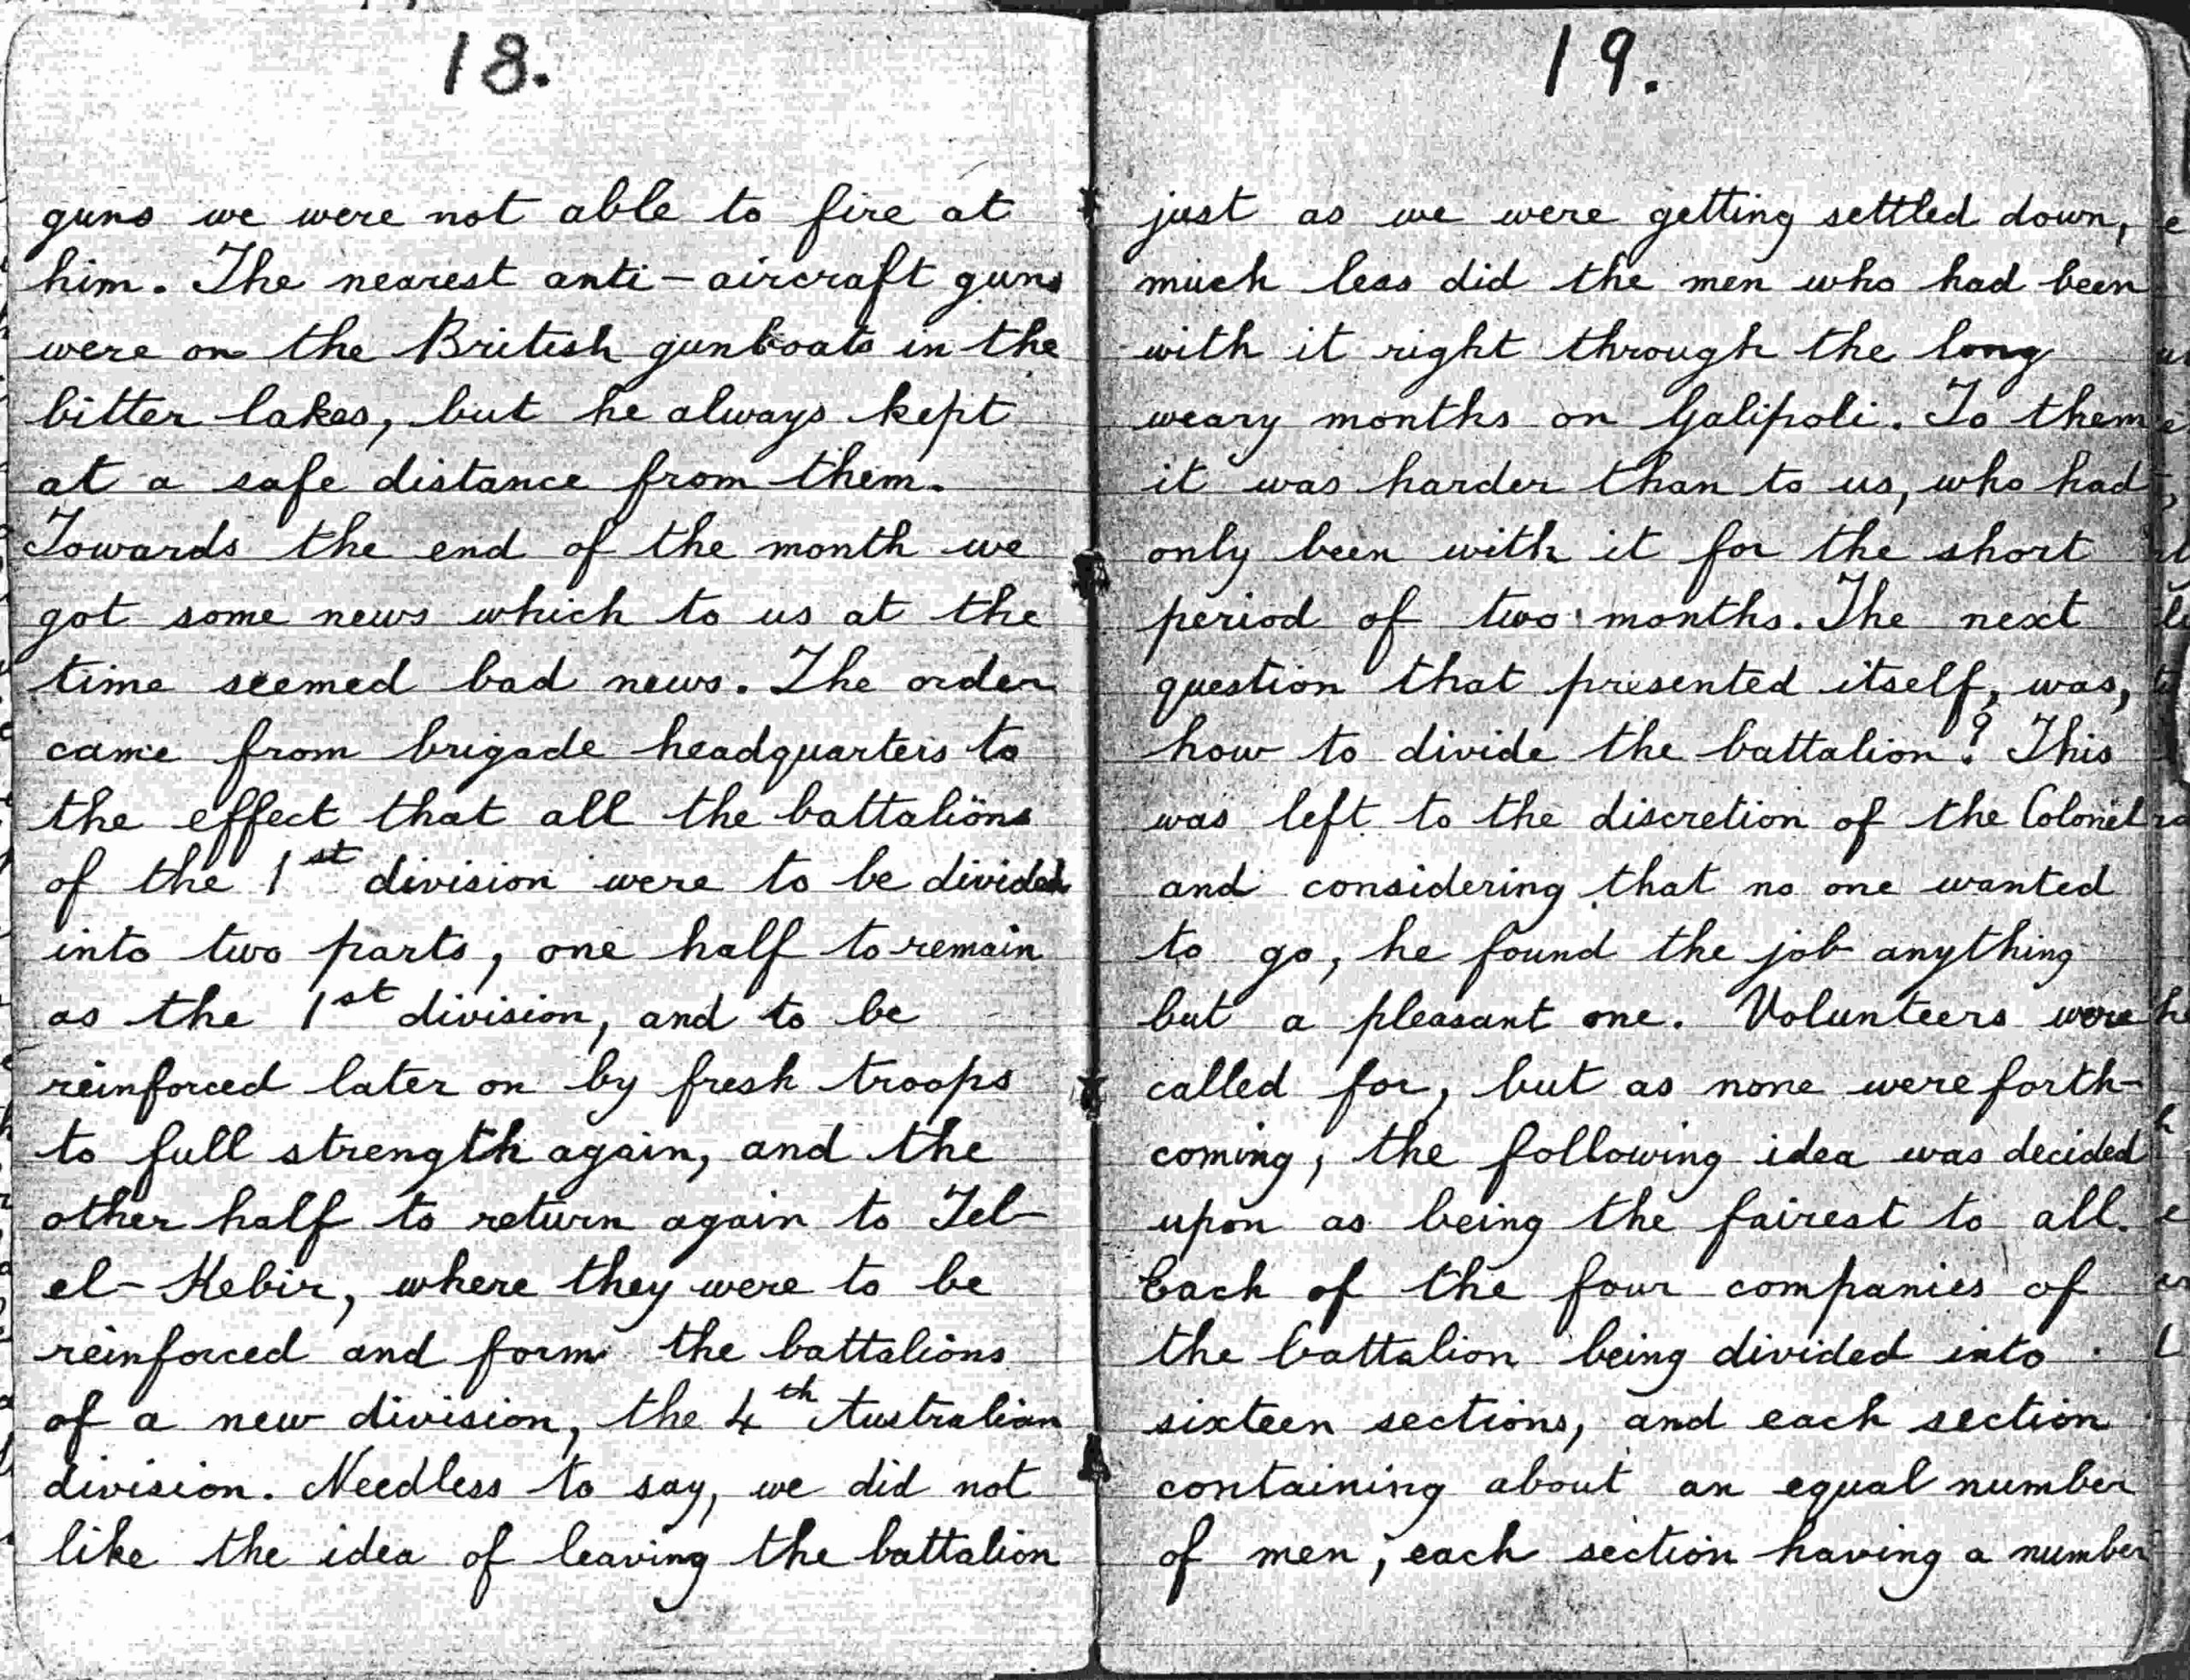 18.
guns we were not able to fire at
him. The nearest anti-aircraft guns
were on the British gunboats in the
bitter lakes, but he always kept
at a safe distance from them.
Towards the end of the month we
got some news which to us at the
time seemed bad news. The order
came from brigade headquarters to
the effect that all the battalions
of the 1st division were to be divided
into two parts, one half to remain
as the 1st division, and to be
reinforced later on by fresh troops
to full strength again, and the
other half to return again to Tel-
el-Kebir, where they were to be
reinforced and form the battalions
of a new division, the 4th Australian
division. Needless to say, we did not
like the idea of leaving the battalion
19.
just as we were getting settled down,
much less did the men who had been
with it right through the long
weary months on Galipoli. To them
it was harder than to us, who had
only been with it for the short
period of two months. The next
question that presented itself, was,
how to divide the battalion? This
was left to the discretion of the Colonel
and considering that no one wanted
to go, he found the job anything
but a pleasant one. Volunteers were
called for, but as none were forth-
coming, the following idea was decided
upon as being the fairest to all.
Each of the four companies of
the battalion being divided into
sixteen sections, and each section
containing about an equal number
of men, each section having a number